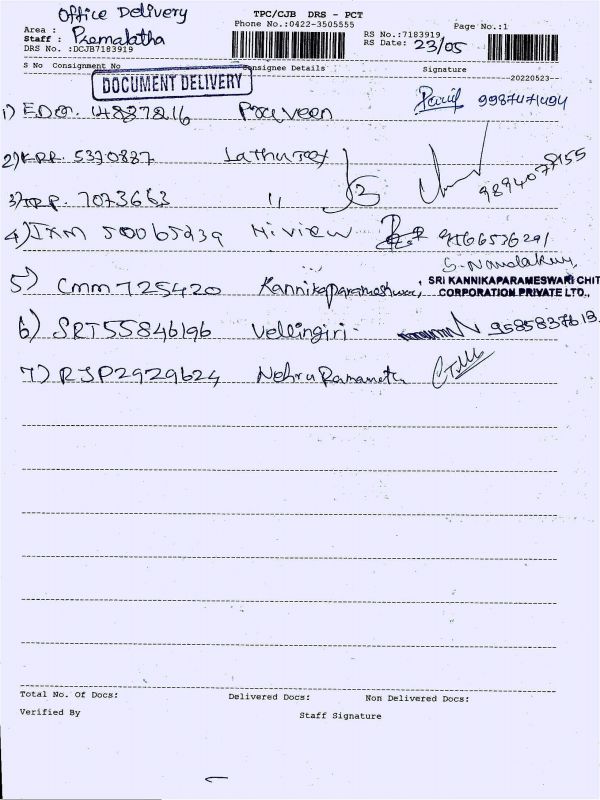 Office Delivery
TPC/CJB DRS - PCT
Phone No.:0422-3505555
Page No.:1
Area :
Staff : Premalatha
DRS No. :DCJB7183919
RS No.:7183919
RS Date: 23/05
S No Consignment No Consignee Details Signature
20220523
DOCUMENT DELIVERY
1) EDO. 14887216 Praveen 9987471494
2) KRR. 5370887 9894077155
3) 7073663 "
4) IXM 50065239 Hi view 9566536291
5) CMM 725420 Kannikaparameshwari
SRI KANNIKAPARAMESWARI CHIT
CORPORATION PRIVATE LTD.,
6) SRT55846196 Vellingiri 9585837613
7) RJP2929624 Nehru
Total No. Of Docs: Delivered Docs: Non Delivered Docs:
Verified By Staff Signature